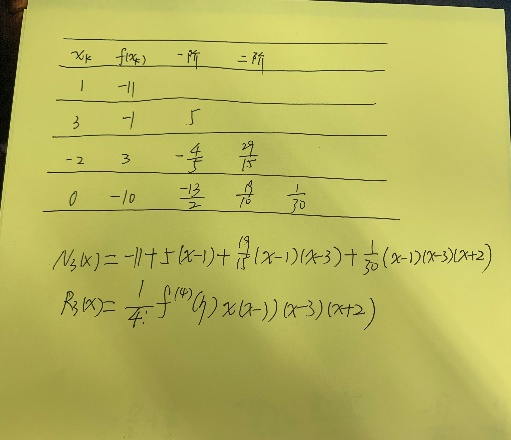 xₖ f(xₖ) 一阶 二阶
1 -11
3 -1 5
-2 3 -4/5 29/15
0 -10 -13/2 19/10 1/30
N₃(x) = -11+5(x-1)+19/15(x-1)(x-3)+1/30(x-1)(x-3)(x+2)
R₃(x) = 1/4! f⁽⁴⁾(η) x(x-1))(x-3)(x+2)